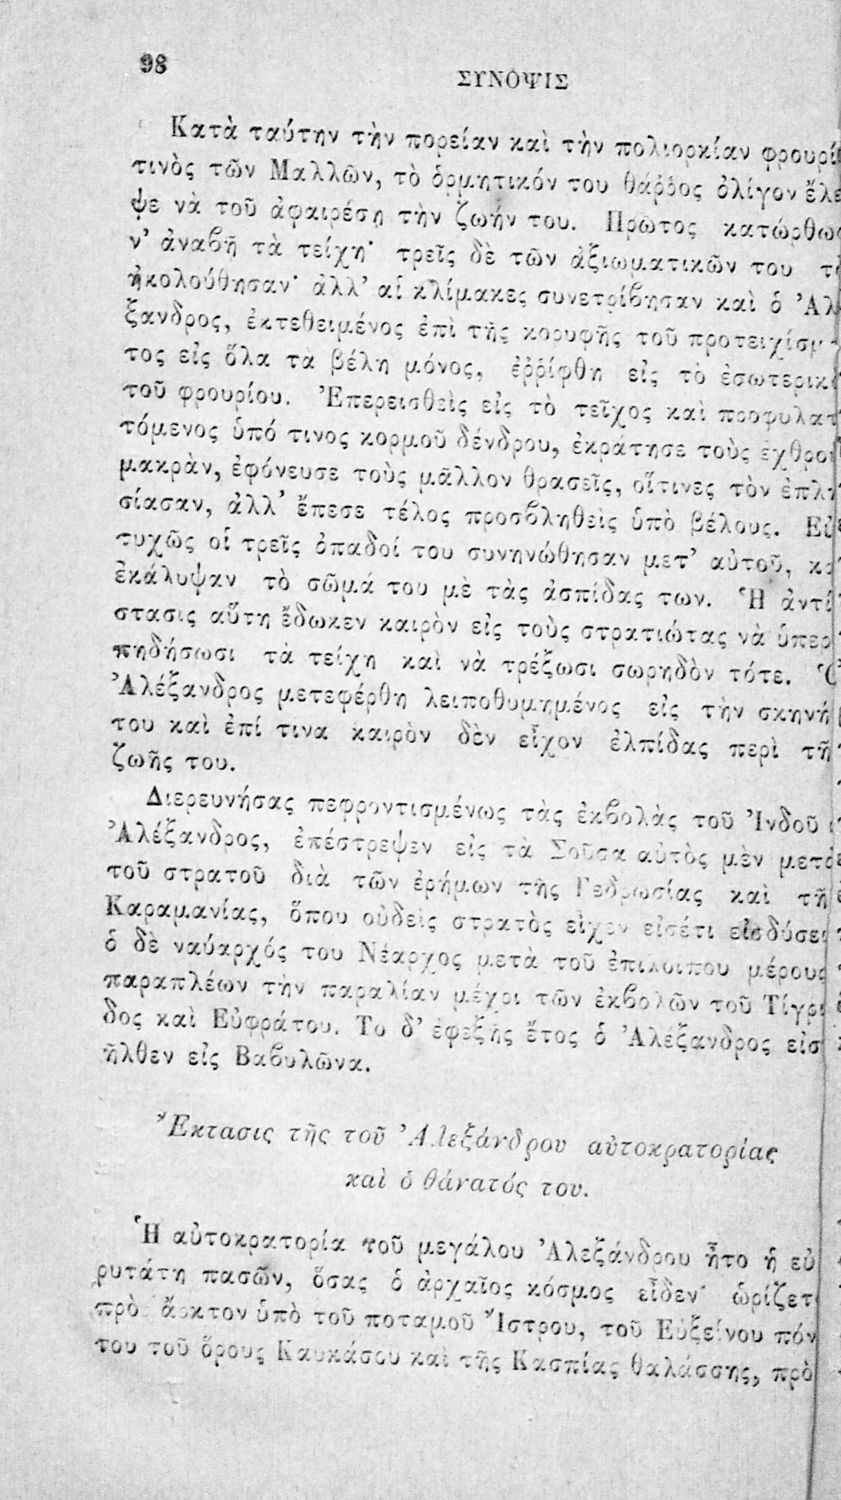 98
ΣΥΝΟΨΙΣ
Κατὰ ταύτην τὴν πορείαν καὶ τὴν πολιορκίαν φρουρί
τινὸς τῶν Μαλλῶν, τὸ ὁρμητικόν του θάῤῥος ὀλίγον ἔλε
ψε νὰ τοῦ ἀφαιρέσῃ τὴν ζωήν του. Πρῶτος κατώρθω
ν' ἀναβῇ τὰ τείχη· τρεῖς δὲ τῶν ἀξιωματικῶν του τ
ἠκολούθησαν· ἀλλ' αἱ κλίμακες συνετρίβησαν καὶ ὁ Ἀλ
ξανδρος, ἐκτεθειμένος ἐπὶ τῆς κορυφῆς τοῦ προτειχίσμ
τος εἰς ὅλα τὰ βέλη μόνος, ἐῤῥίφθη εἰς τὸ ἐσωτερικ
τοῦ φρουρίου. Ἐπερεισθεὶς εἰς τὸ τεῖχος καὶ προφυλατ
τόμενος ὑπό τινος κορμοῦ δένδρου, ἐκράτησε τοὺς ἐχθρο
μακρὰν, ἐφόνευσε τοὺς μᾶλλον θρασεῖς, οἵτινες τὸν ἐπλη
σίασαν, ἀλλ' ἔπεσε τέλος προσβληθεὶς ὑπὸ βέλους. Εὐ
τυχῶς οἱ τρεῖς ὀπαδοί του συνηνώθησαν μετ' αὐτοῦ, κα
ἐκάλυψαν τὸ σῶμά του μὲ τὰς ἀσπίδας των. Ἡ ἀντί
στασις αὕτη ἔδωκεν καιρὸν εἰς τοὺς στρατιώτας νὰ ὑπερ
πηδήσωσι τὰ τείχη καὶ νὰ τρέξωσι σωρηδὸν τότε. Ὁ
Ἀλέξανδρος μετεφέρθη λειποθυμημένος εἰς τὴν σκηνή
του καὶ ἐπί τινα καιρὸν δὲν εἶχον ἐλπίδας περὶ τῆ
ζωῆς του.
Διερευνήσας πεφροντισμένως τὰς ἐκβολὰς τοῦ Ἰνδοῦ
Ἀλέξανδρος, ἐπέστρεψεν εἰς τὰ Σοῦσα αὐτὸς μὲν μετὰ
τοῦ στρατοῦ διὰ τῶν ἐρήμων τῆς Γεδρωσίας καὶ τῆ
Καραμανίας, ὅπου οὐδεὶς στρατὸς εἶχεν εἰσέτι εἰσδύσει
ὁ δὲ ναύαρχός του Νέαρχος μετὰ τοῦ ἐπιλοίπου μέρους
παραπλέων τὴν παραλίαν μέχρι τῶν ἐκβολῶν τοῦ Τίγρι
δος καὶ Εὐφράτου. Το δ' ἐφεξῆς ἔτος ὁ Ἀλέξανδρος εἰσ
ῆλθεν εἰς Βαβυλῶνα.
Ἔκτασις τῆς τοῦ Ἀλεξάνδρου αὐτοκρατορίας
καὶ ὁ θάνατός του.
Ἡ αὐτοκρατορία τοῦ μεγάλου Ἀλεξάνδρου ἦτο ἡ εὐ
ρυτάτη πασῶν, ὅσας ὁ ἀρχαῖος κόσμος εἶδεν· ὡρίζετ
πρὸς ἄρκτον ὑπὸ τοῦ ποταμοῦ Ἴστρου, τοῦ Εὐξείνου πόν
του τοῦ ὄρους Καυκάσου καὶ τῆς Κασπίας θαλάσσης, πρὸ